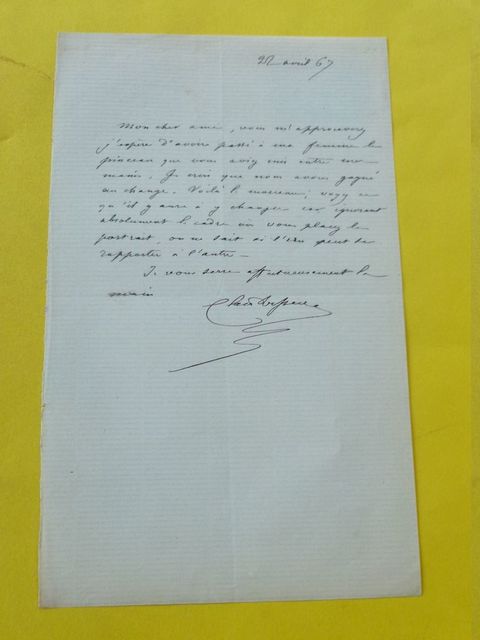 22 avril 67
Mon cher ami, vous m'approuverez
j'espère d'avoir passé à ma femme le
pinceau que vous aviez mis entre mes
mains. Je crois que nous avons gagné
au change. Voilà le morceau; voyez ce
qu'il y aura à y changer car ignorant
absolument le cadre où vous placez le
portrait, on ne sait si l'un peut se
rapporter à l'autre -
Je vous serre affectueusement la
main